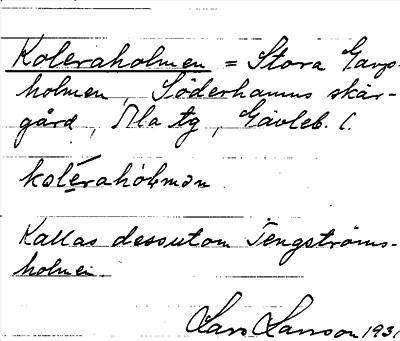 Koleraholmen = Stora Gaps-
holmen, Söderhamns skär-
gård, Ala tg, Gävleb. l.
koléraholmən
Kallas dessutom Tengströms-
holmen.
Lars Larsson 1931